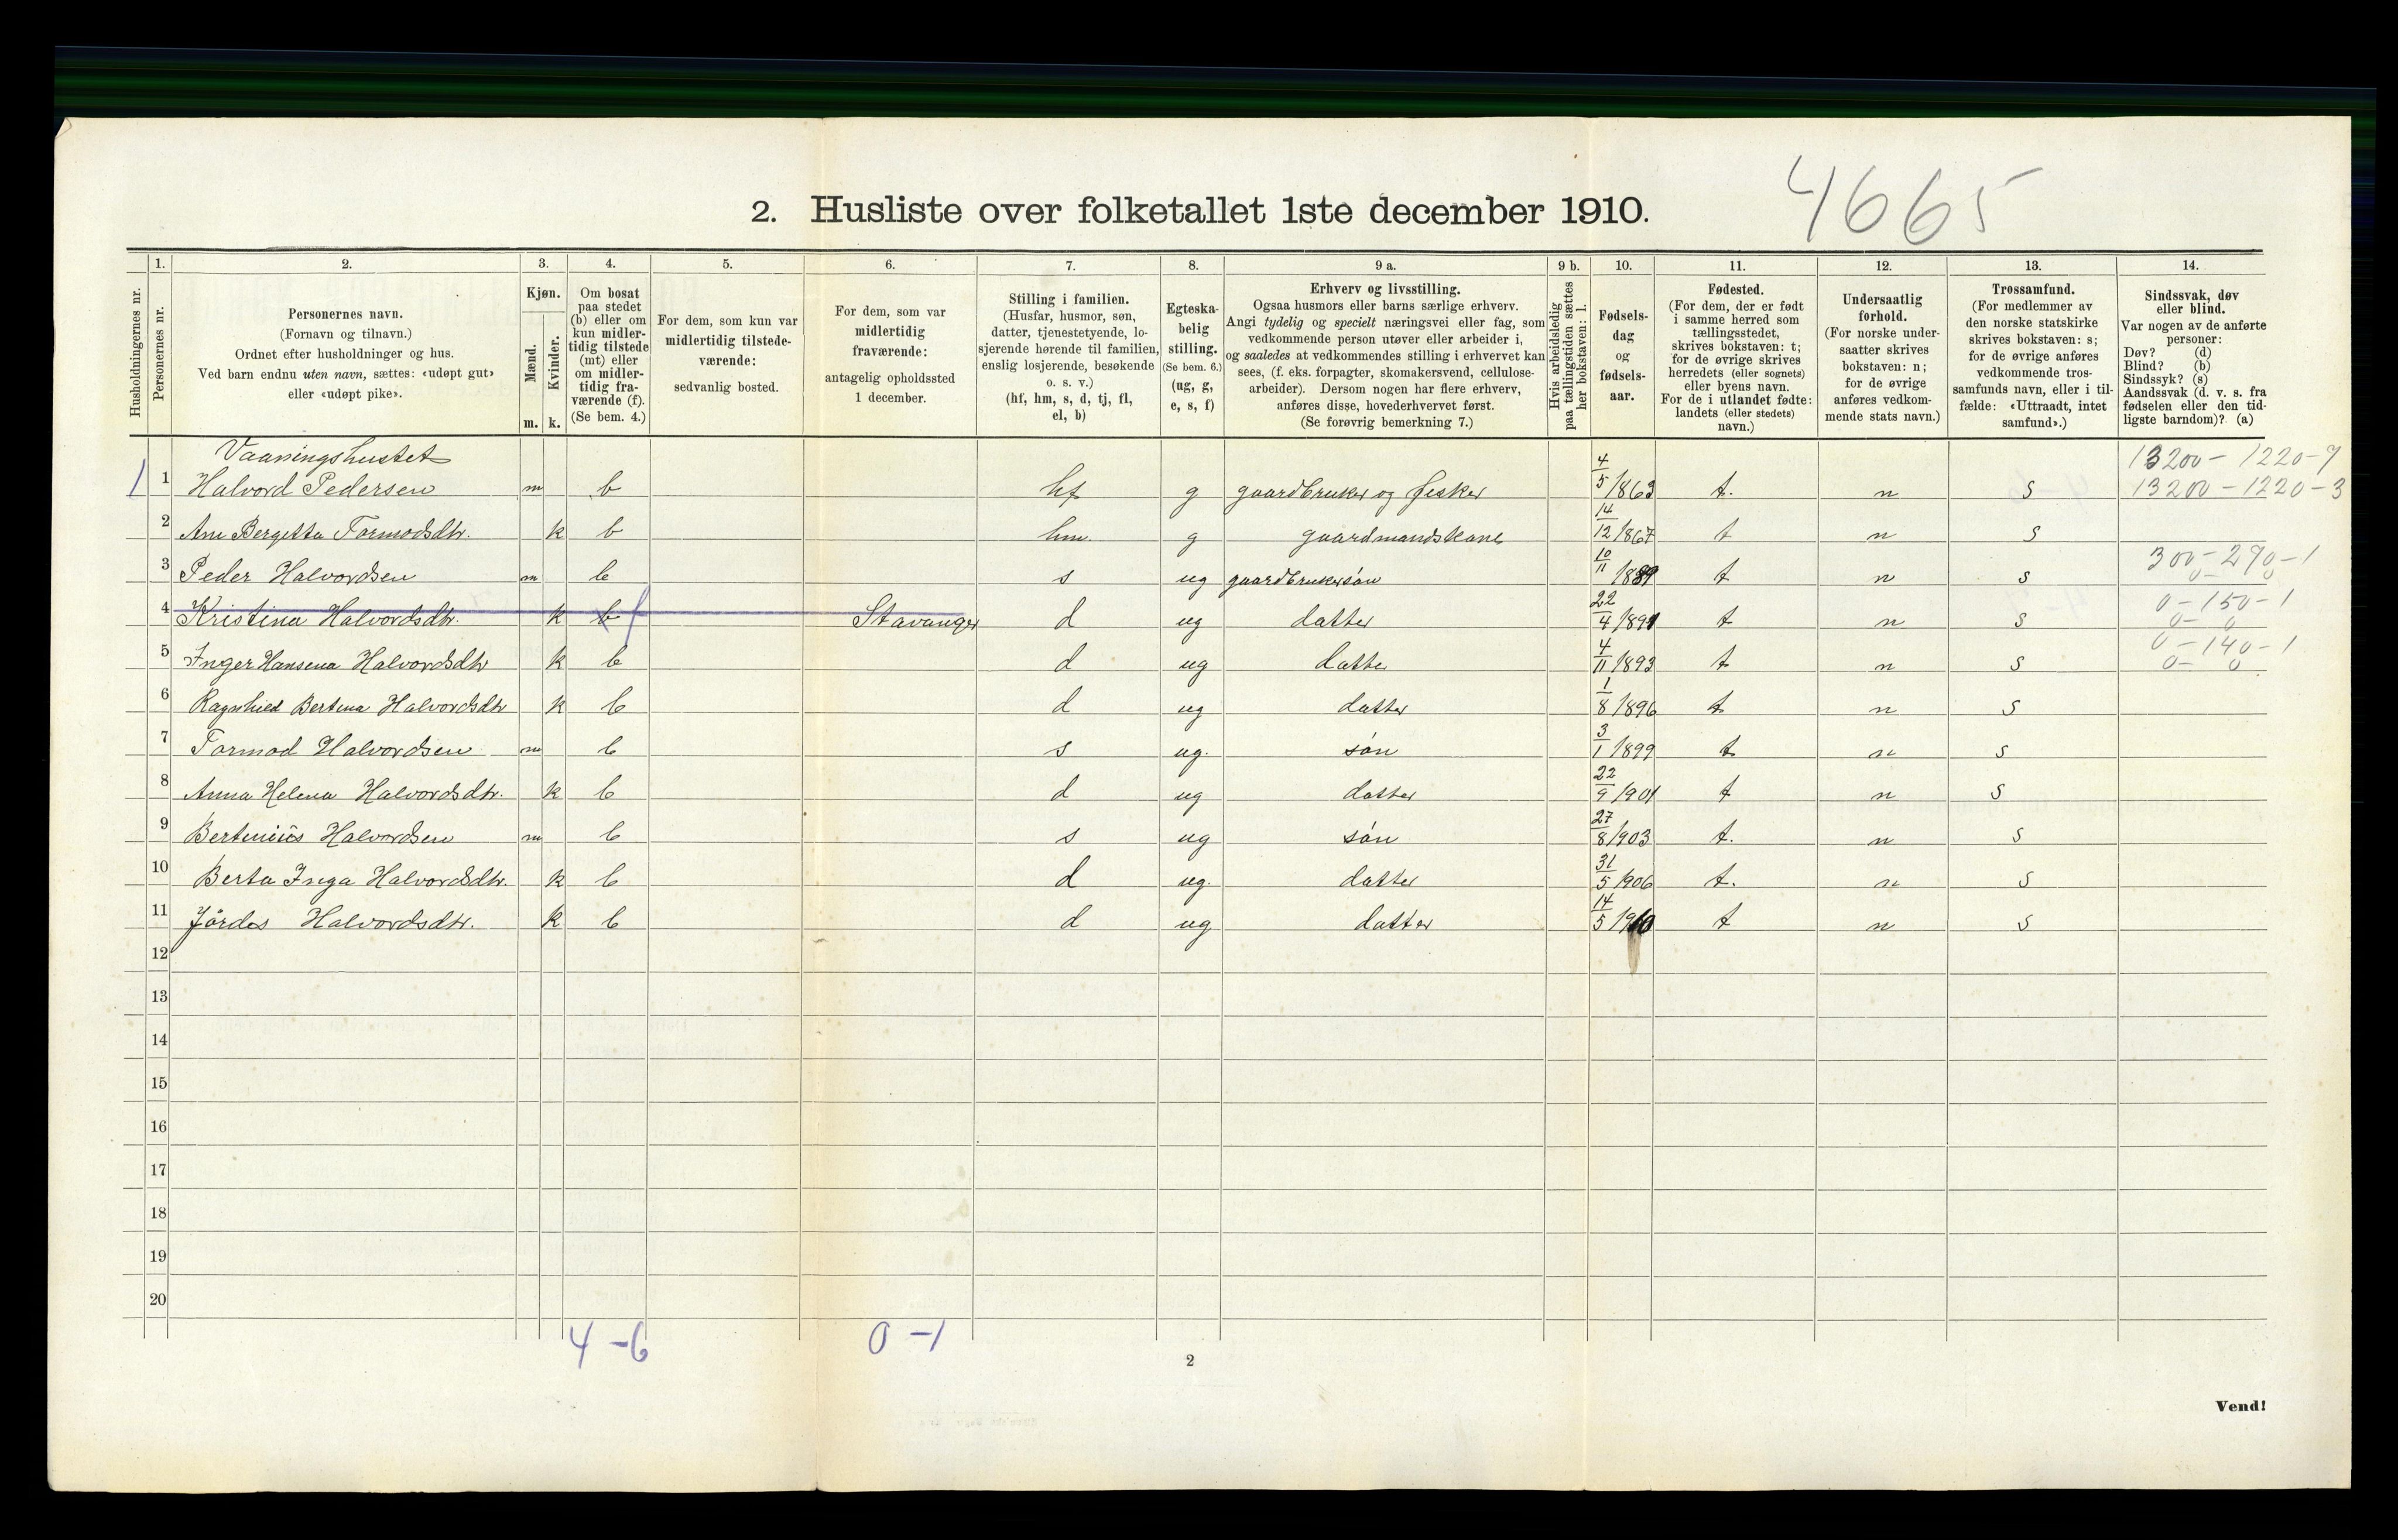 4665
2. Husliste over folketallet 1ste december 1910.
1. 2. 3. 4. 5. 6. 7. 8. 9 a. 9 b. 10. 11. 12. 13. 14.
Husholdningernes nr.
Personernes nr.
Personernes navn.
(Fornavn og tilnavn.)
Ordnet efter husholdninger og hus.
Ved barn endnu uten navn, sættes: «udøpt gut»
eller «udøpt pike».
Kjøn.
Mænd.
Kvinder.
m. k.
Om bosat
paa stedet
(b) eller om
kun midler-
tidig tilstede
(mt) eller
om midler-
tidig fra-
værende (f).
(Se bem. 4.)
For dem, som kun var
midlertidig tilstede-
værende:
sedvanlig bosted.
For dem, som var
midlertidig
fraværende:
antagelig opholdssted
1 december.
Stilling i familien.
(Husfar, husmor, søn,
datter, tjenestetyende, lo-
sjerende hørende til familien,
enslig losjerende, besøkende
o. s. v.)
(hf, hm, s, d, tj, fl,
el, b)
Egteska-
belig
stilling.
(Se bem. 6.)
(ug, g,
e, s, f)
Erhverv og livsstilling.
Ogsaa husmors eller barns særlige erhverv.
Angi tydelig og specielt næringsvei eller fag, som
vedkommende person utøver eller arbeider i,
og saaledes at vedkommendes stilling i erhvervet kan
sees, (f. eks. forpagter, skomakersvend, cellulose-
arbeider). Dersom nogen har flere erhverv,
anføres disse, hovederhvervet først.
(Se forøvrig bemerkning 7.)
Hvis arbeidsledig
paa tællingstiden sættes
her bokstaven: l.
Fødsels-
dag
og
fødsels-
aar.
Fødested.
(For dem, der er født
i samme herred som
tællingsstedet,
skrives bokstaven: t;
for de øvrige skrives
herredets (eller sognets)
eller byens navn.
For de i utlandet fødte:
landets (eller stedets)
navn.)
Undersaatlig
forhold.
(For norske under-
saatter skrives
bokstaven: n;
for de øvrige
anføres vedkom-
mende stats navn.)
Trossamfund.
(For medlemmer av
den norske statskirke
skrives bokstaven: s;
for de øvrige anføres
vedkommende tros-
samfunds navn, eller i til-
fælde: «Uttraadt, intet
samfund».)
Sindssvak, døv
eller blind.
Var nogen av de anførte
personer:
Døv? (d)
Blind? (b)
Sindssyk? (s)
Aandssvak (d. v. s. fra
fødselen eller den tid-
ligste barndom)? (a)
Vaaningshustet 13200 - 1220 - 7
1 1 Halvord Pedersen m b hf g gaardbruker og fisker 4/5 1863 t. n s 13200 - 1220 - 3
2 Ane Bergetta Tormodsdtr. k b hm. g gaardmandskone 14/12 1867 t n s
3 Peder Halvordsen m b s ug gaardbrukersøn 10/11 1889 t n s 300 - 290 - 1
0 - 0
4 Kristina Halvordsdtr. k b f Stavanger d ug datter 22/4 1891 t n s 0 - 150 - 1
0 - 0
5 Inger Hansena Halvordsdtr k b d ug datter 4/11 1893 t n s 0 - 140 - 1
0 - 0
6 Ragnhild Bertina Halvordsdtr k b d ug datter 1/8 1896 t n s
7 Tormod Halvordsen m b s ug. søn 3/1 1899 t n s
8 Anna Helena Halvordsdtr. k b d ug datter 22/9 1901 t n s
9 Bertinius Halvordsen m b s ug søn 27/8 1903 t. n s
10 Berta Inga Halvordsdtr. k b d ug. datter 31/5 1906 t. n s
11 Jørdes Halvordsdtr. k b d ug datter 14/5 1910 t n s
12
13
14
15
16
17
18
19
20
4 - 6 0 - 1
2
Vend!